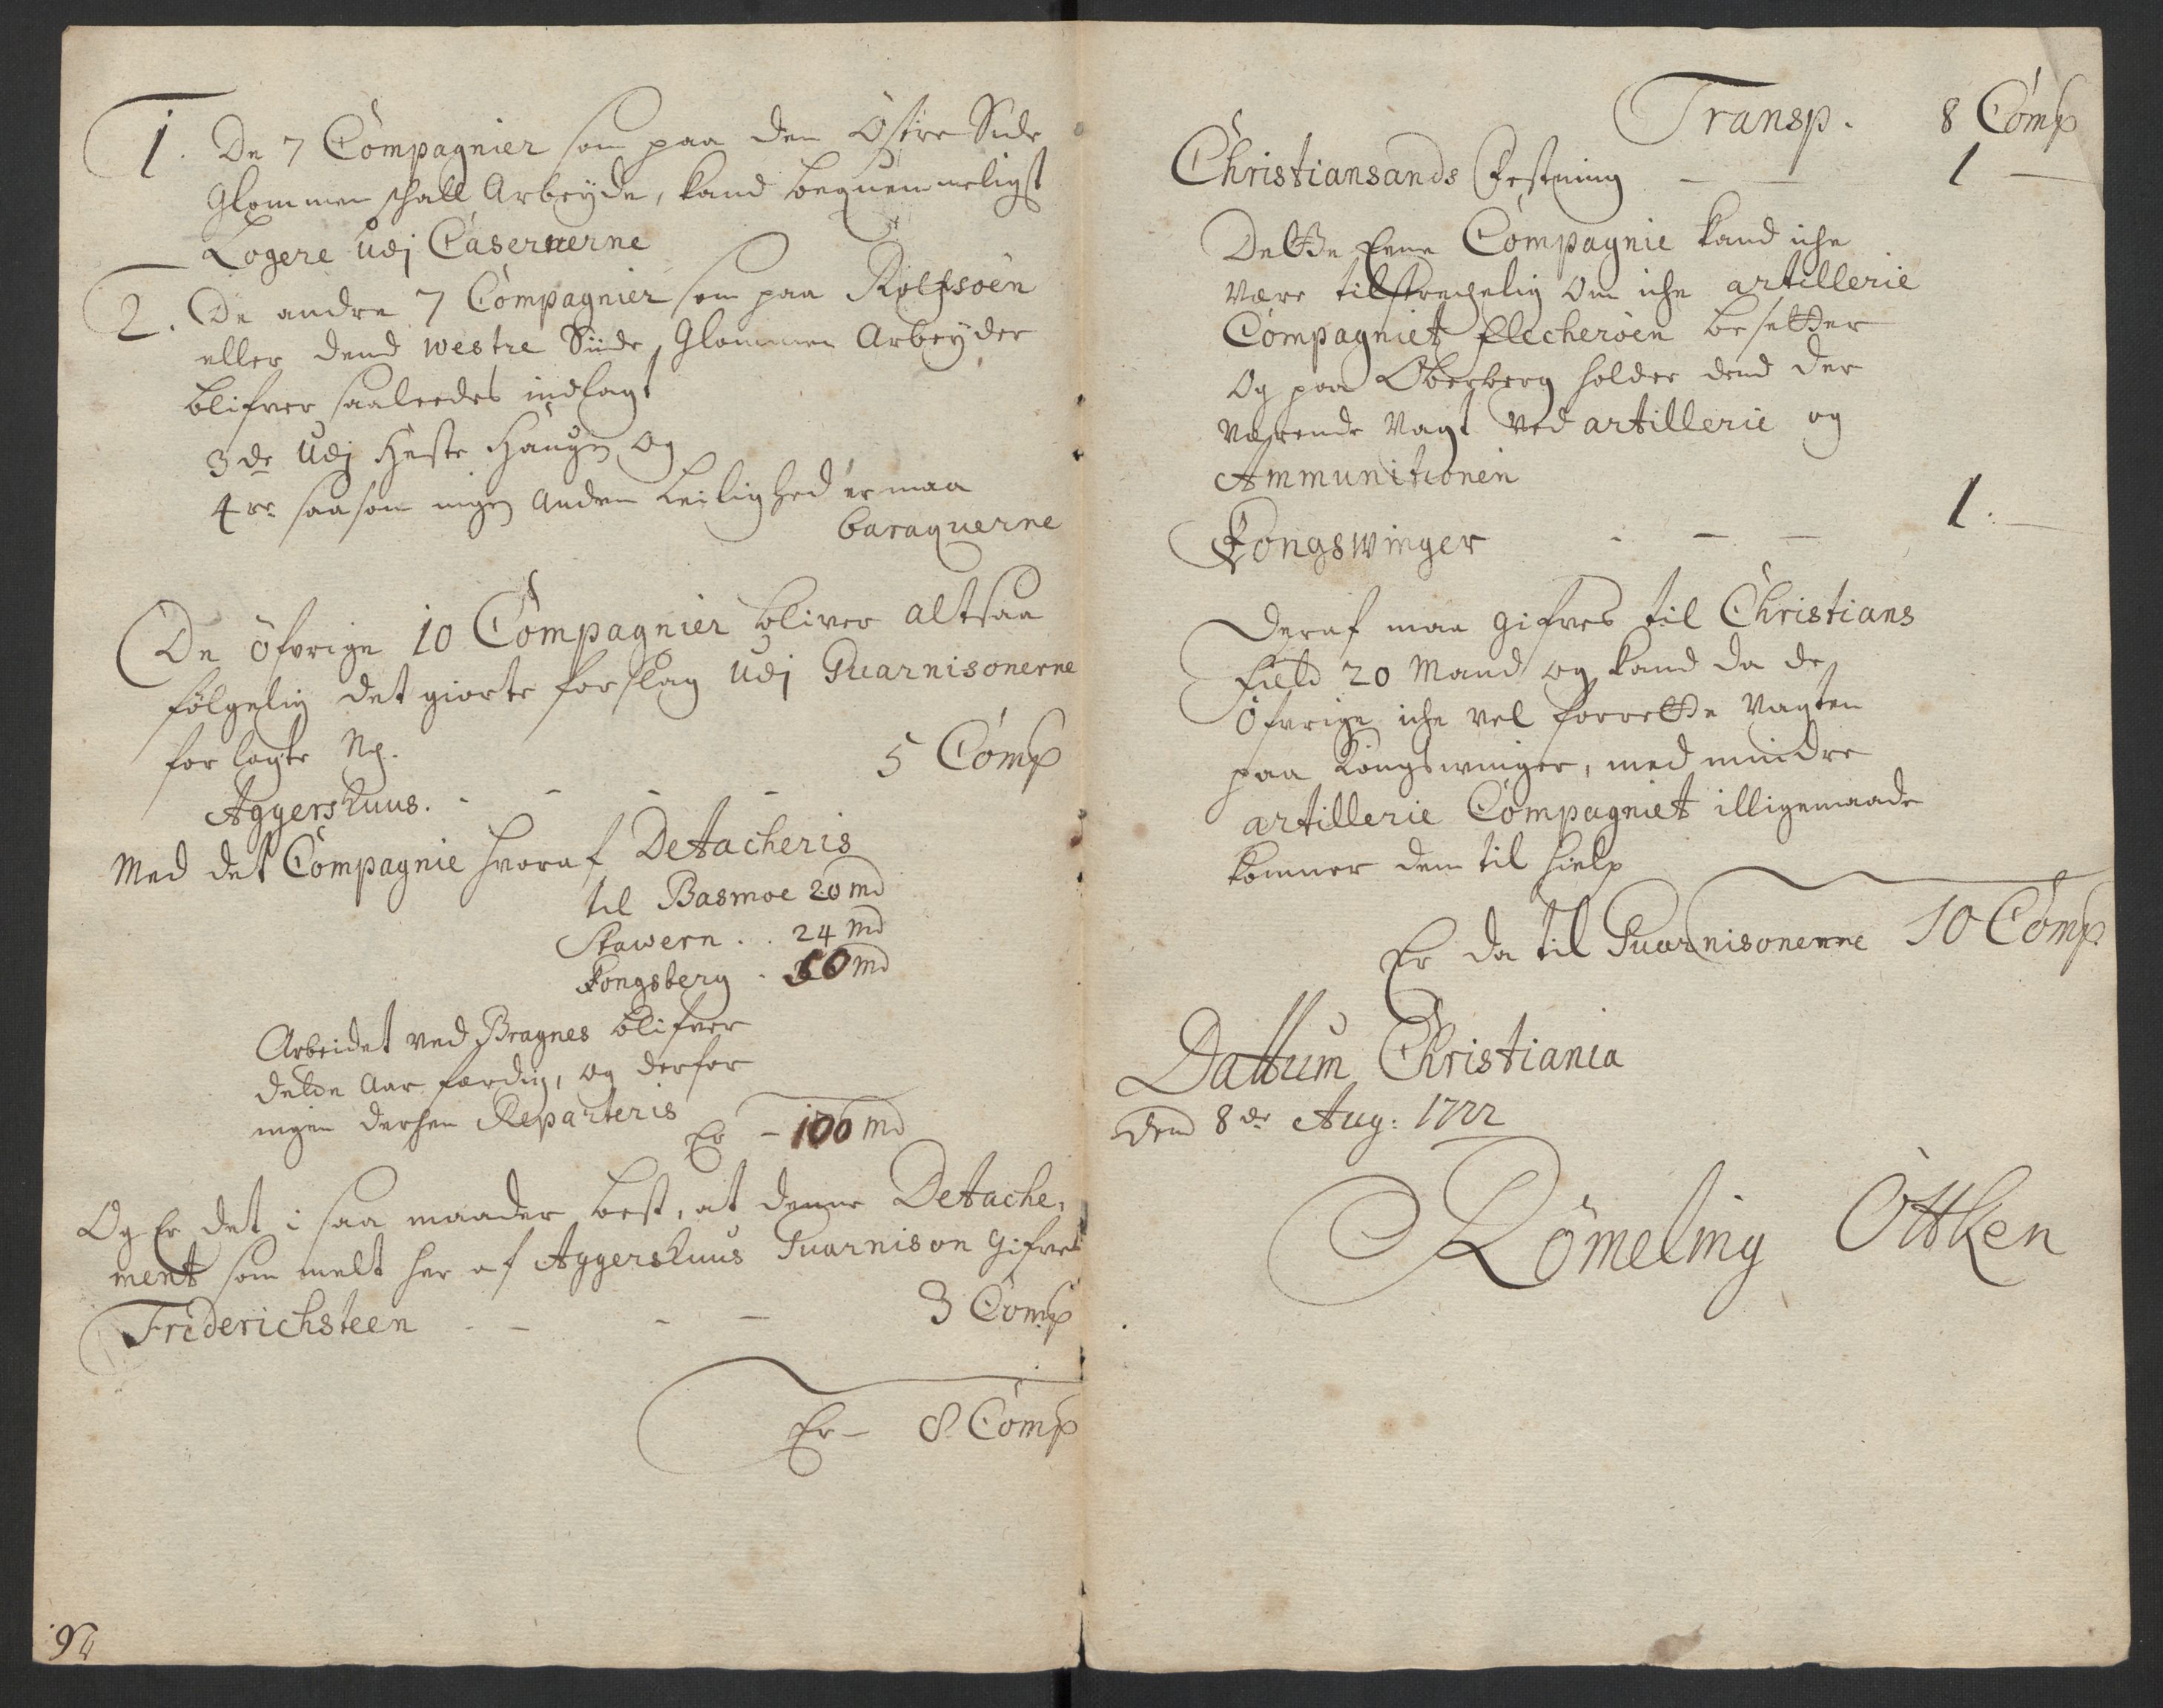 1. De 7 Compagnier som paa den Östre Side
Glommen schall Arbeyde, kand beqvemmeligst
Logere udj Casernerne
2. De andre 7 Compagnier som paa Rolfsöen
eller dend westre Siide Glommen Arbeyder
blifver saaleedes indlagt
3de udj Heste Haugen og
4re saasom ingen anden Leilighed er maa
baraquerne
De öfvrige 10 Compagnier bliver altsaa
fölgelig det giorte forslag udj Guarnisonerne
forlagte Nl.
Aggershuus. - - - - 5 Comp
Med det Compagnie hvoraf Detacheris
til Basmoe 20 md
Stawern . . 24 md
Kongsberg . 56 md
Arbeidet ved Bragnes blifver
dette Aar færdig, og derfor
ingen derhen Reparteris
Er - 100 md
Og Er det i saa maader best, at denne Detache,
ment som melt her af Aggershuus Guarnison Gifves
Friderichsteen - - - - 3 Comp
Er - 8 Comp
94
Transp. 8 Comp
Christiansands Festning - - 1 -
Dette Eene Compagnie kand iche
være tilstrechelig om iche artillerie
Compagniet flecheröen besetter
Og paa Oberberg holder dend der
værende Vagt ved artillerie og
Ammunitionen
Kongswinger - - - 1. -
Deraf maa gifves til Christians
field 20 Mand og kand da de
öfvrige iche vel forrette Vagten
paa Kongswinger, med mindre
artillerie Compagniet illigemaade
kommer dem til hielp
Er da til Guarnisonerne 10 Comp
Dattum Christiania
Dend 8de Aug: 1722
Römeling Ottken